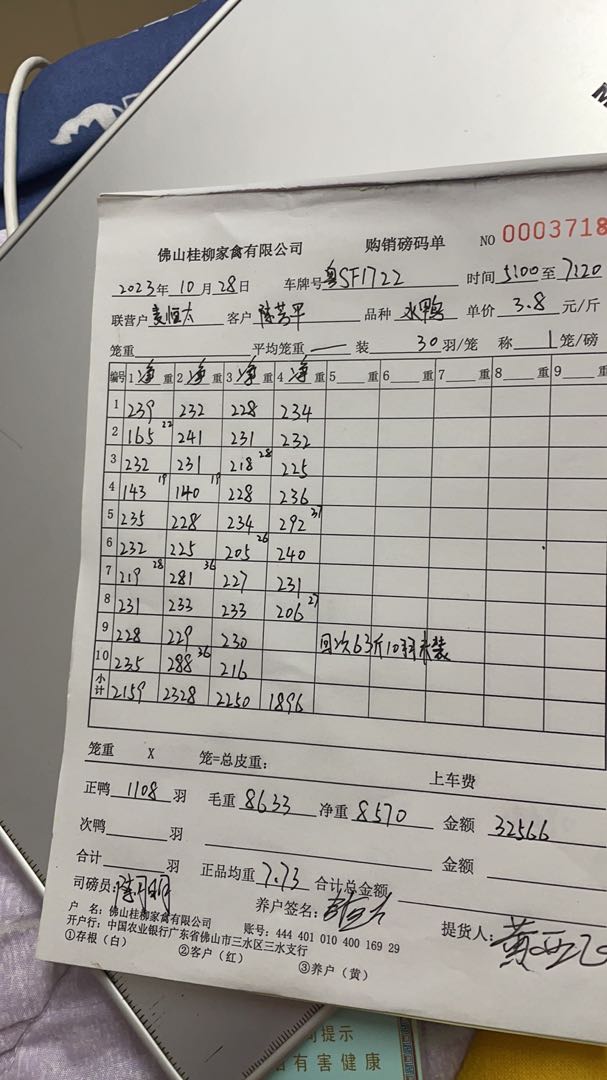 M
佛山桂柳家禽有限公司 购销磅码单 NO 0003718
2023年 10月 28日 车牌号 粤SF1722 时间 5:00 至 7:20
联营户 麦恒太 客户 品种 水鸭 单价 3.8 元/斤
笼重 平均笼重 一 装 30 羽/笼 称 1 笼/磅
编号 1 净 重 2 净 重 3 净 重 4 净 重 5 重 6 重 7 重 8 重 9 重
1 239 232 228 234
2 165 22 241 231 232
3 232 231 218 28 225
4 143 19 140 19 228 236
5 235 228 234 292 37
6 232 225 205 26 240
7 219 28 281 36 227 231
8 231 233 233 206 27
9 228 229 230 回次63斤10羽未装
10 235 288 36 216
小计 2159 2328 2250 1896
笼重 X 笼=总皮重： 上车费
正鸭 1108 羽 毛重 8633 净重 8570 金额 32566
次鸭 羽 金额
合计 羽 正品均重 7.73 合计总金额
司磅员： 养户签名： 提货人：
户 名：佛山桂柳家禽有限公司 账号：444 401 010 400 169 29
开户行：中国农业银行广东省佛山市三水区三水支行
①存根（白） ②客户（红） ③养户（黄）
提示
有害健康